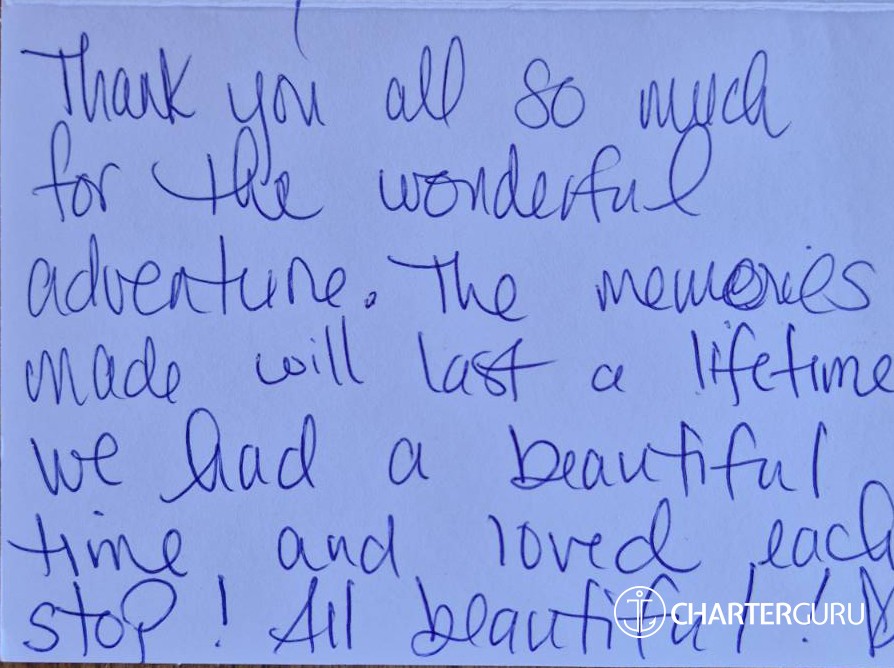 Thank you all so much
for the wonderful
adventure. The memories
made will last a lifetime
we had a beautiful
time and loved each
stop! All beautiful!
CHARTERGURU